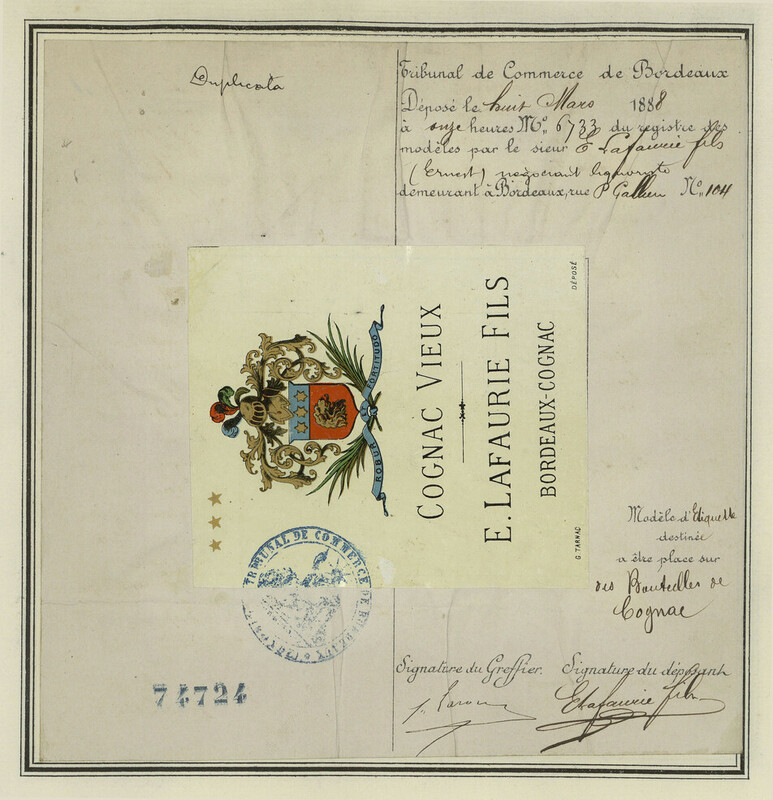 Duplicata
Tribunal de Commerce de Bordeaux
Déposé le huit Mars 1888
à onze heures No. 6733 du registre des
modèles par le sieur E Lafaurie fils
(Ernest) négociant liquoriste
demeurant à Bordeaux, rue P Gallien No. 104
ROBUR ET FORTITUDO
COGNAC VIEUX
E. LAFAURIE FILS
BORDEAUX-COGNAC
DÉPOSÉ
G. TARNAC
TRIBUNAL DE COMMERCE DE BORDEAUX
Modèle d'Etiquette
destinée
a être place sur
des Bouteilles de
Cognac
Signature du Greffier. Signature du déposant
ELafaurie fils
74724